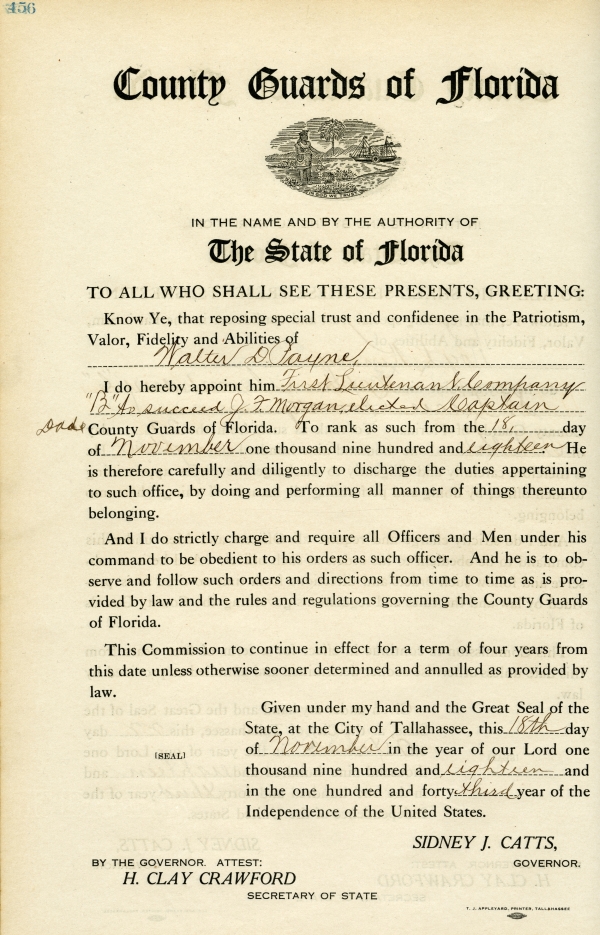 456
County Guards of Florida
IN GOD WE TRUST
IN THE NAME AND BY THE AUTHORITY OF
The State of Florida
TO ALL WHO SHALL SEE THESE PRESENTS, GREETING:
Know Ye, that reposing special trust and confidence in the Patriotism,
Valor, Fidelity and Abilities of
Walter D. Payne
I do hereby appoint him First Lieutenant Company
"B" to succeed J. F. Morgan, elected Captain
Dade County Guards of Florida. To rank as such from the 18, day
of November one thousand nine hundred and eighteen. He
is therefore carefully and diligently to discharge the duties appertaining
to such office, by doing and performing all manner of things thereunto
belonging.
And I do strictly charge and require all Officers and Men under his
command to be obedient to his orders as such officer. And he is to ob-
serve and follow such orders and directions from time to time as is pro-
vided by law and the rules and regulations governing the County Guards
of Florida.
This Commission to continue in effect for a term of four years from
this date unless otherwise sooner determined and annulled as provided by
law.
Given under my hand and the Great Seal of the
State, at the City of Tallahassee, this 18th day
[SEAL] of November in the year of our Lord one
thousand nine hundred and eighteen and
in the one hundred and forty-third year of the
Independence of the United States.
SIDNEY J. CATTS,
BY THE GOVERNOR. ATTEST: GOVERNOR.
H. CLAY CRAWFORD
SECRETARY OF STATE
T. J. APPLEYARD, PRINTER, TALLAHASSEE